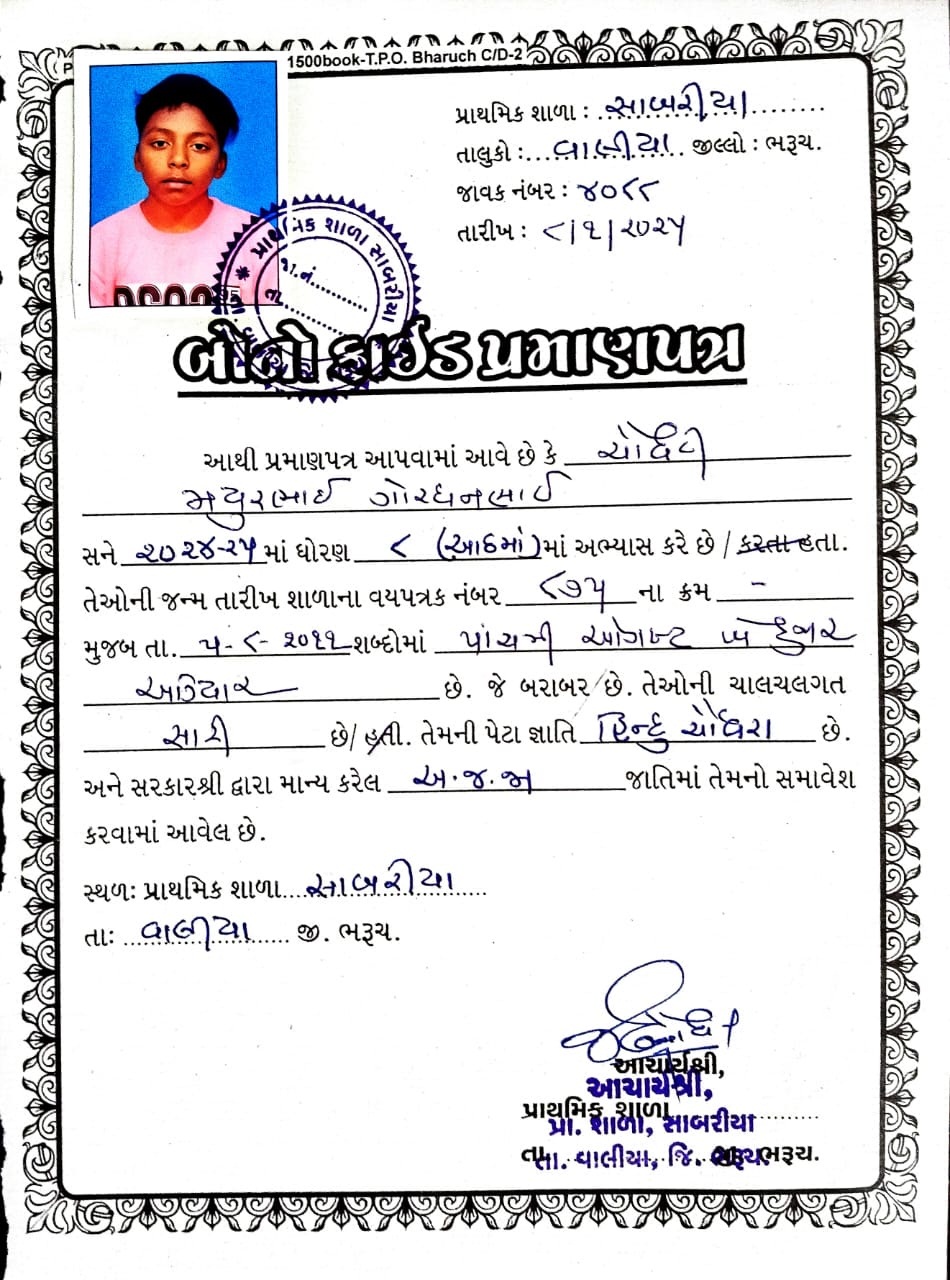 1500book-T.P.O. Bharuch C/D-2
પ્રાથમિક શાળા : સાબરીયા
તાલુકો: વાલીયા જીલ્લો : ભરૂચ.
જાવક નંબર : ૪૦૮૮
તારીખ : ૮/૧/૨૦૨૫
પ્રાથમિક શાળા સાબરીયા
જા.નં.
તા.
બોનોફાઈડ પ્રમાણપત્ર
આથી પ્રમાણપત્ર આપવામાં આવે છે કે ચૌધરી
મયુરભાઈ ગોરધનભાઈ
સને ૨૦૨૪-૨૫ માં ધોરણ ૮ (આઠમાં) માં અભ્યાસ કરે છે / કરતા હતા.
તેઓની જન્મ તારીખ શાળાના વયપત્રક નંબર ૮૭૫ ના ક્રમ -
મુજબ તા. ૫-૮-૨૦૧૧ શબ્દોમાં પાંચમી ઓગષ્ટ બે હજાર
અગિયાર છે. જે બરાબર છે. તેઓની ચાલચલગત
સારી છે/ હતી. તેમની પેટા જ્ઞાતિ હિન્દુ ચૌધરી છે.
અને સરકારશ્રી દ્વારા માન્ય કરેલ અ.જ.જા જાતિમાં તેમનો સમાવેશ
કરવામાં આવેલ છે.
સ્થળઃ પ્રાથમિક શાળા સાબરીયા
તાઃ વાલીયા જી. ભરૂચ.
આચાર્યશ્રી,
આચાર્યશ્રી,
પ્રાથમિક શાળા
પ્રા. શાળા, સાબરીયા
તા. વાલીયા, જિ. ભરૂચ.
તા. જી. ભરૂચ.